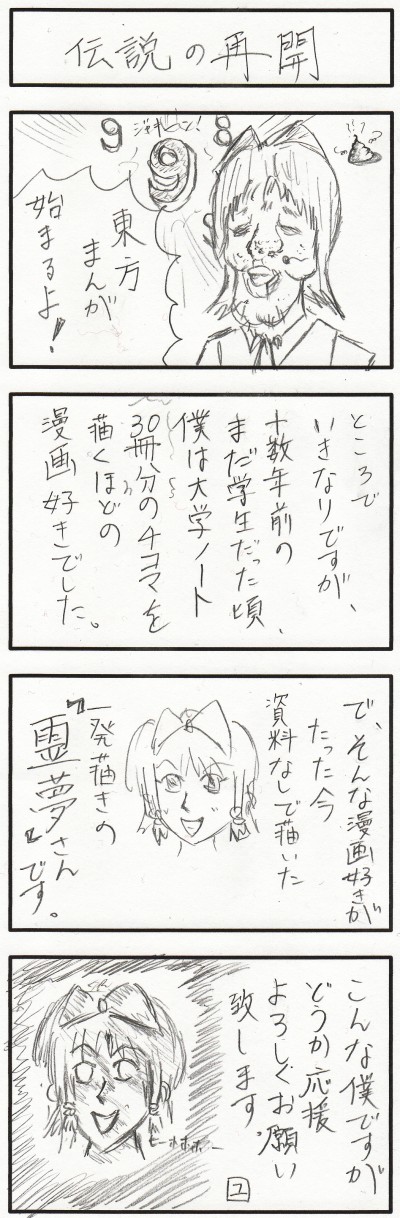 伝説の再開
9
9
8
ジャキーン!
東方
まんが
始まるよ!
ところで
いきなりですが、
十数年前の
まだ学生だった頃、
僕は大学ノート
30冊分の4コマを
描くほどの
漫画好きでした。
で、そんな漫画好きが
たった今
資料なしで描いた
一発描きの
『霊夢さん』
です。
こんな僕ですが
どうか応援
よろしくお願い
致します
ヒーホホホー
ユ